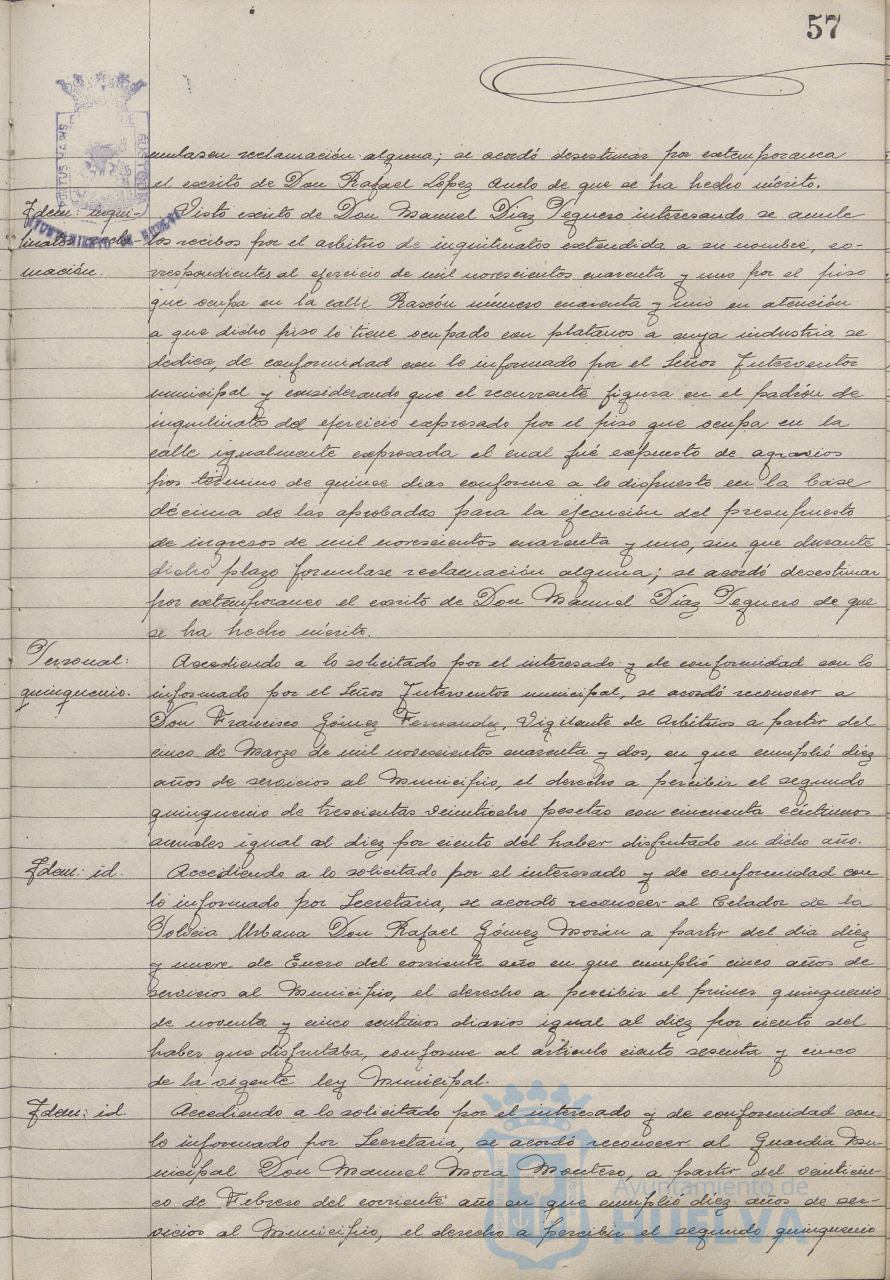 57
mulasen reclamación alguna; se acordó desestimar por extemporanea
el escrito de Don Rafael López Avelo de que se ha hecho mérito.
Idem: inqui-
linatos recla-
mación.
Visto escrito de Don Manuel Díaz Peguero interesando se anule
los recibos por el arbitrio de inquilinatos extendida a su nombre, co-
rrespondientes al ejercicio de mil novescientos cuarenta y uno por el piso
que ocupa en la calle Rascón número cuarenta y uno en atención
a que dicho piso lo tiene ocupado con platanos a cuya industria se
dedica, de conformidad con lo informado por el Señor Interventor
municipal y considerando que el recurrente figura en el padrón de
inquilinatos del ejercicio expresado por el piso que ocupa en la
calle igualmente expresada el cual fué expuesto de agravios
por término de quince dias conforme a lo dispuesto en la base
décima de las aprobadas para la ejecución del presupuesto
de ingresos de mil novescientos cuarenta y uno, sin que durante
dicho plazo formulase reclamación alguna; se acordó desestimar
por extemporaneo el escrito de Don Manuel Díaz Peguero de que
se ha hecho mérito.
Personal:
quinquenio.
Accediendo a lo solicitado por el interesado y de conformidad con lo
informado por el Señor Interventor municipal, se acordó reconocer a
Don Francisco Gómez Fernandez, Vigilante de Arbitrios a partir del
cinco de Marzo de mil novescientos cuarenta y dos, en que cumplió diez
años de servicios al Municipio, el derecho a percibir el segundo
quinquenio de trescientas veintiocho pesetas con cincuenta céntimos
anuales igual al diez por ciento del haber disfrutado en dicho año.
Idem: id.
Accediendo a lo solicitado por el interesado y de conformidad con
lo informado por Secretaria, se acordó reconocer al Celador de la
Policia Urbana Don Rafael Gómez Morán a partir del dia diez
y nueve de Enero del corriente año en que cumplió cinco años de
servicios al Municipio, el derecho a percibir el primer quinquenio
de noventa y cinco centimos diarios igual al diez por ciento del
haber que disfrutaba, conforme al articulo ciento sesenta y cinco
de la vigente ley Municipal.
Idem: id.
Accediendo a lo solicitado por el interesado y de conformidad con
lo informado por Secretaria, se acordó reconocer al Guardia Mu-
nicipal Don Manuel Mora Montero, a partir del veinticin-
co de Febrero del corriente año en que cumplió diez años de ser-
vicios al Municipio, el derecho a percibir el segundo quinquenio
Ayuntamiento de
HUELVA